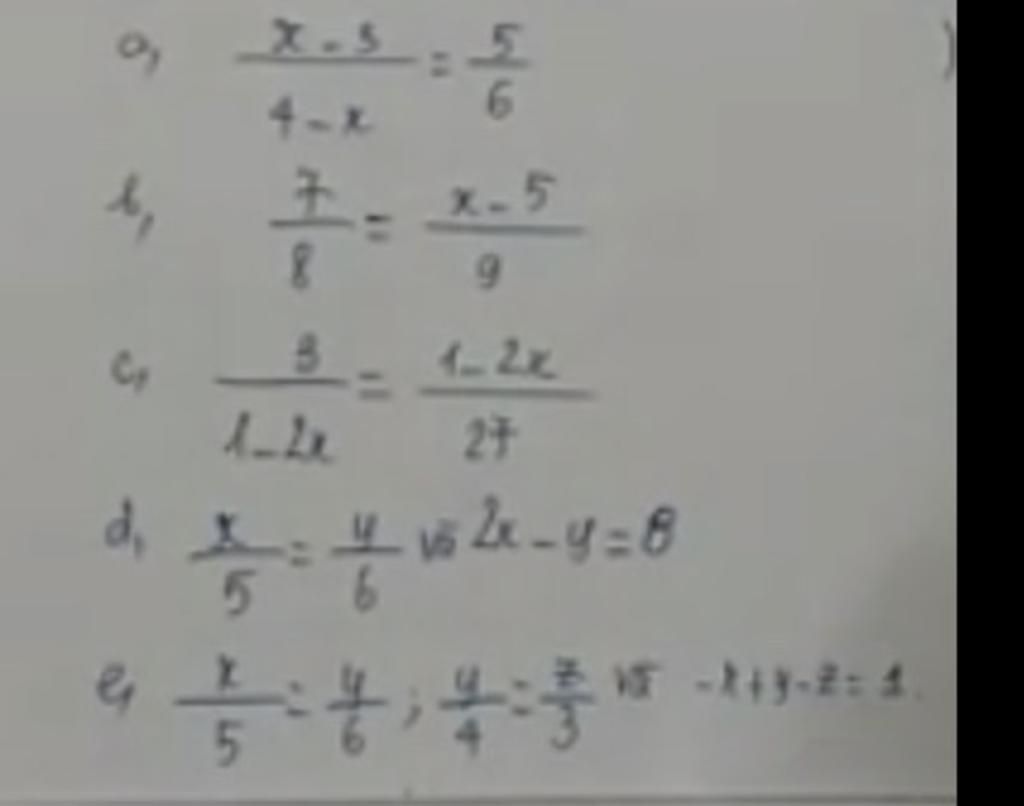 a, x - 3 / 4 - x = 5 / 6
b, 7 / 8 = x - 5 / 9
c, 3 / 1 - 2x = 1 - 2x / 27
d, x / 5 = y / 6 và 2x - y = 8
e, x / 5 = y / 6 ; y / 4 = z / 3 và - x + y - z = 1.